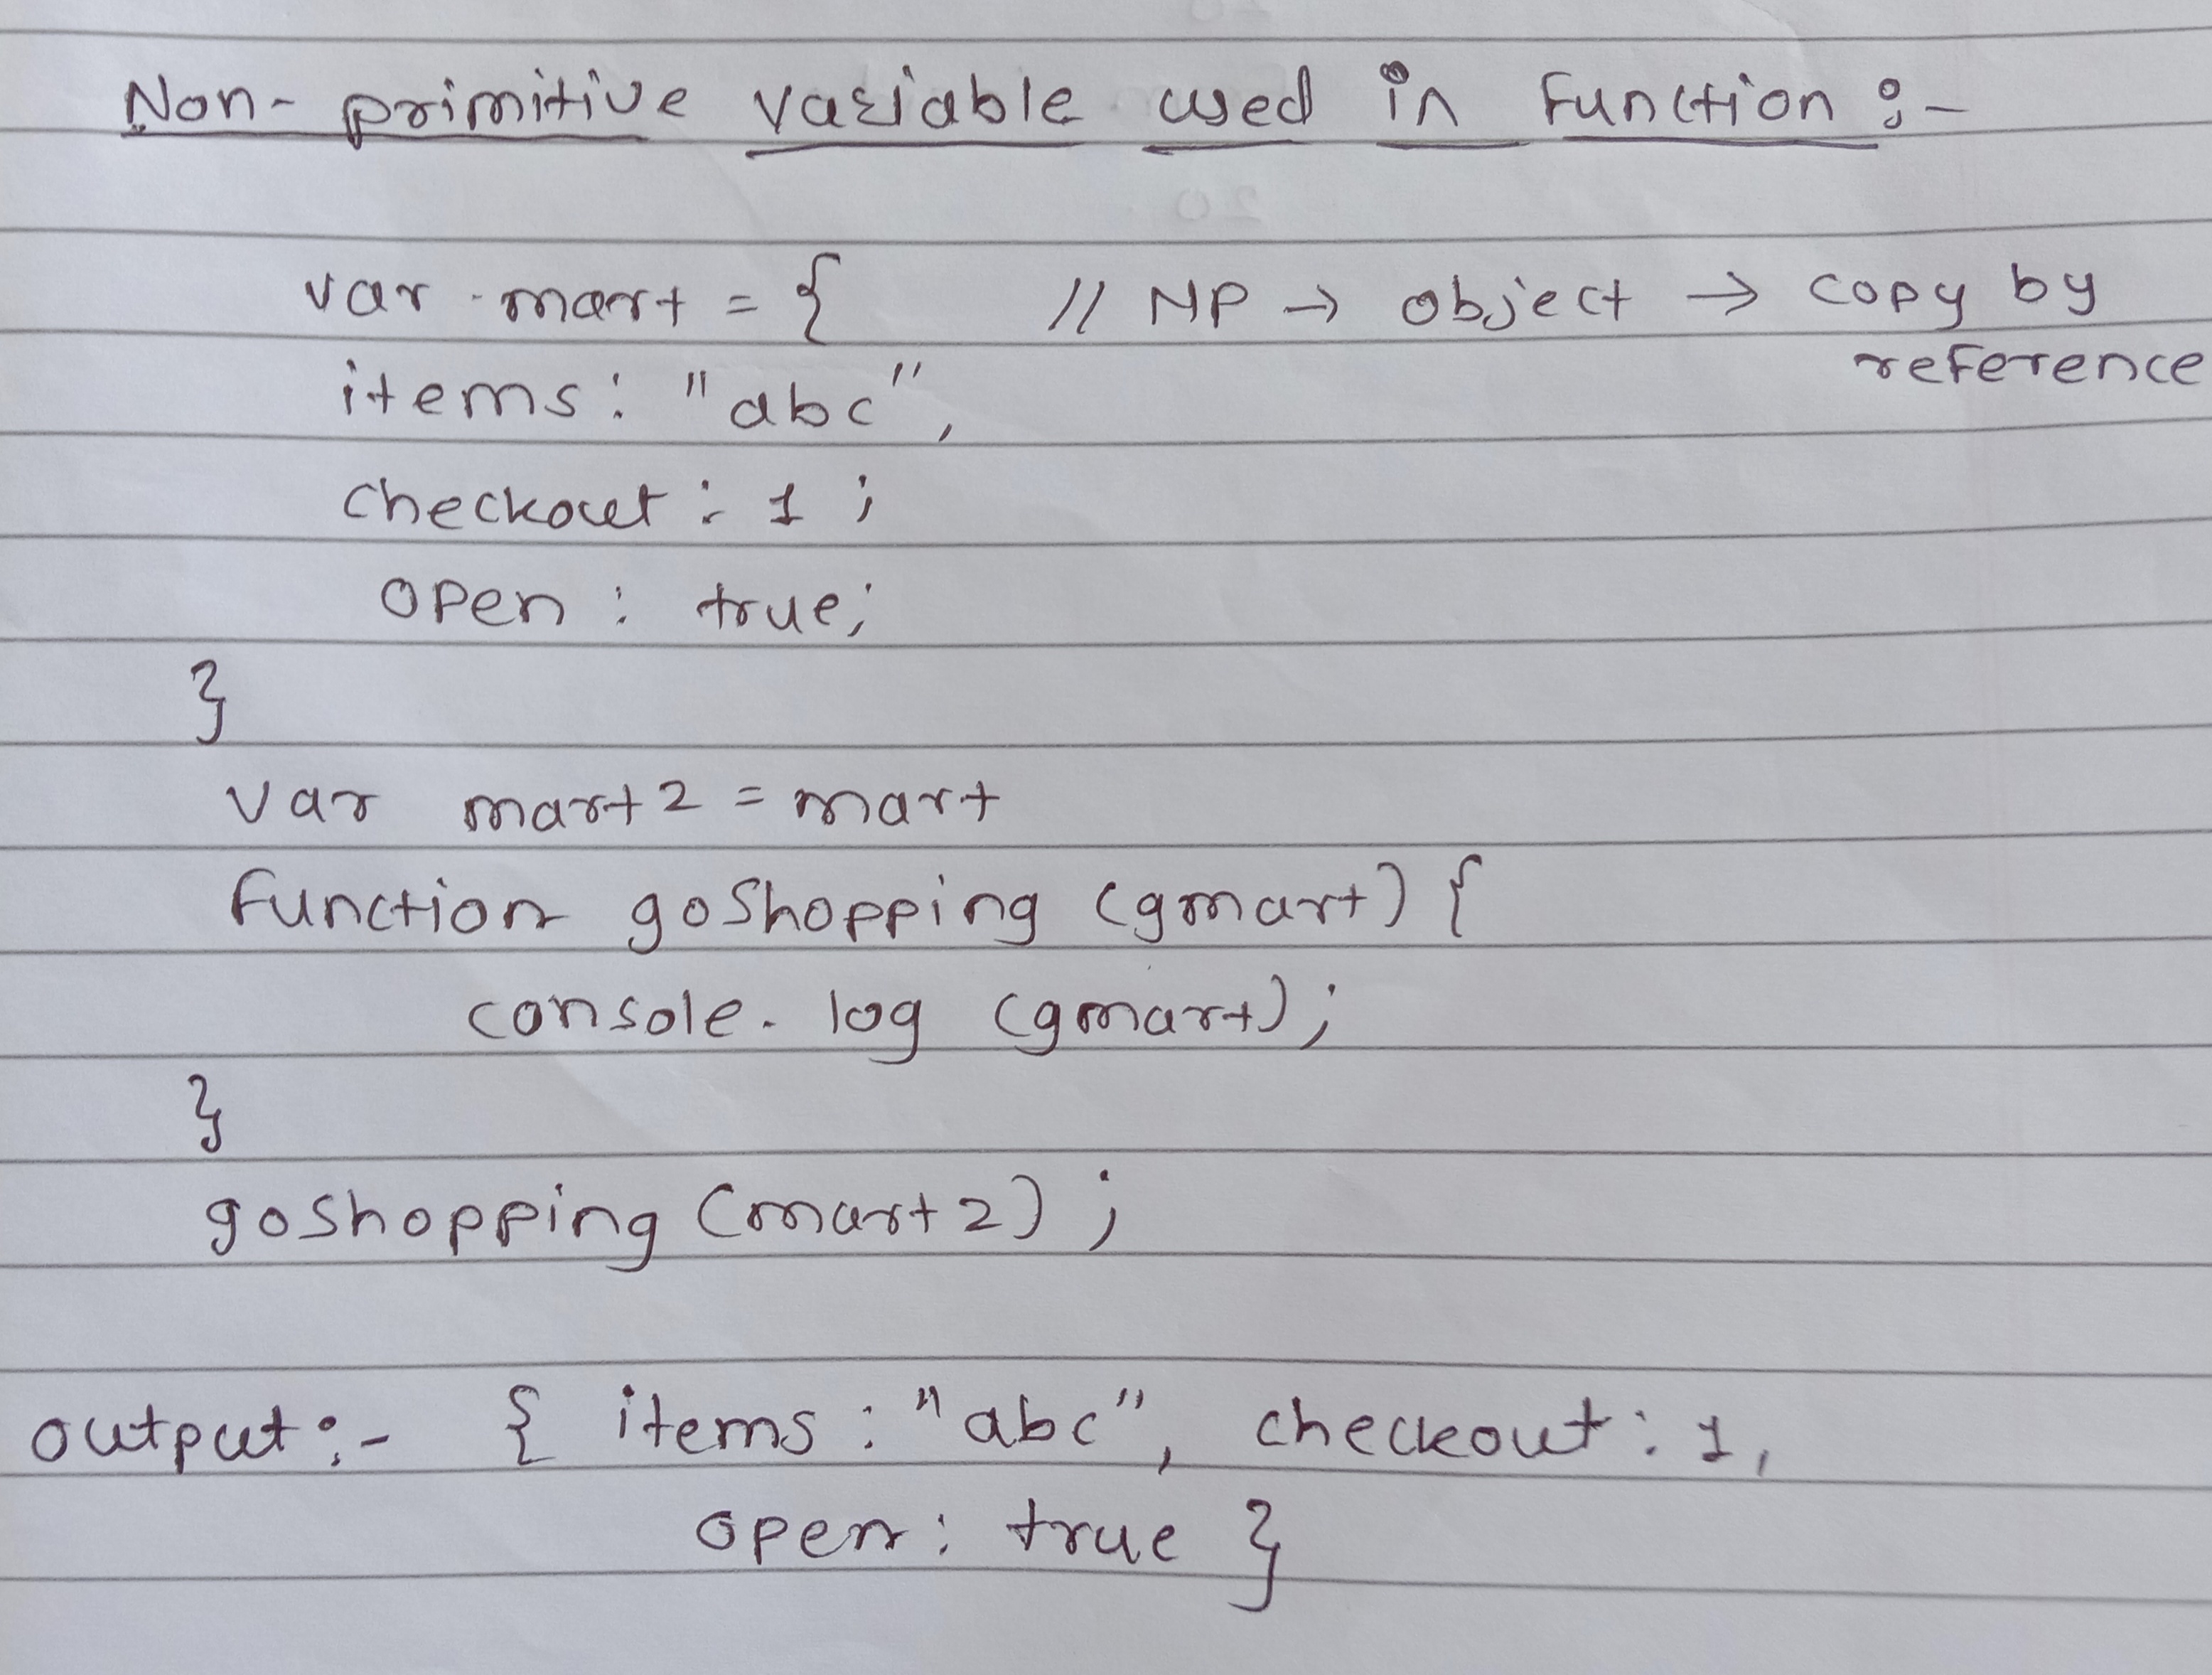 Non-primitive variable used in Function :-
var mart = { // NP → object → copy by
reference
items: "abc",
checkout: 1;
open: true;
}
var mart2 = mart
Function goShopping (gmart) {
console.log (gmart);
}
goshopping (mart2);
output:- { items: "abc", checkout: 1,
open: true }